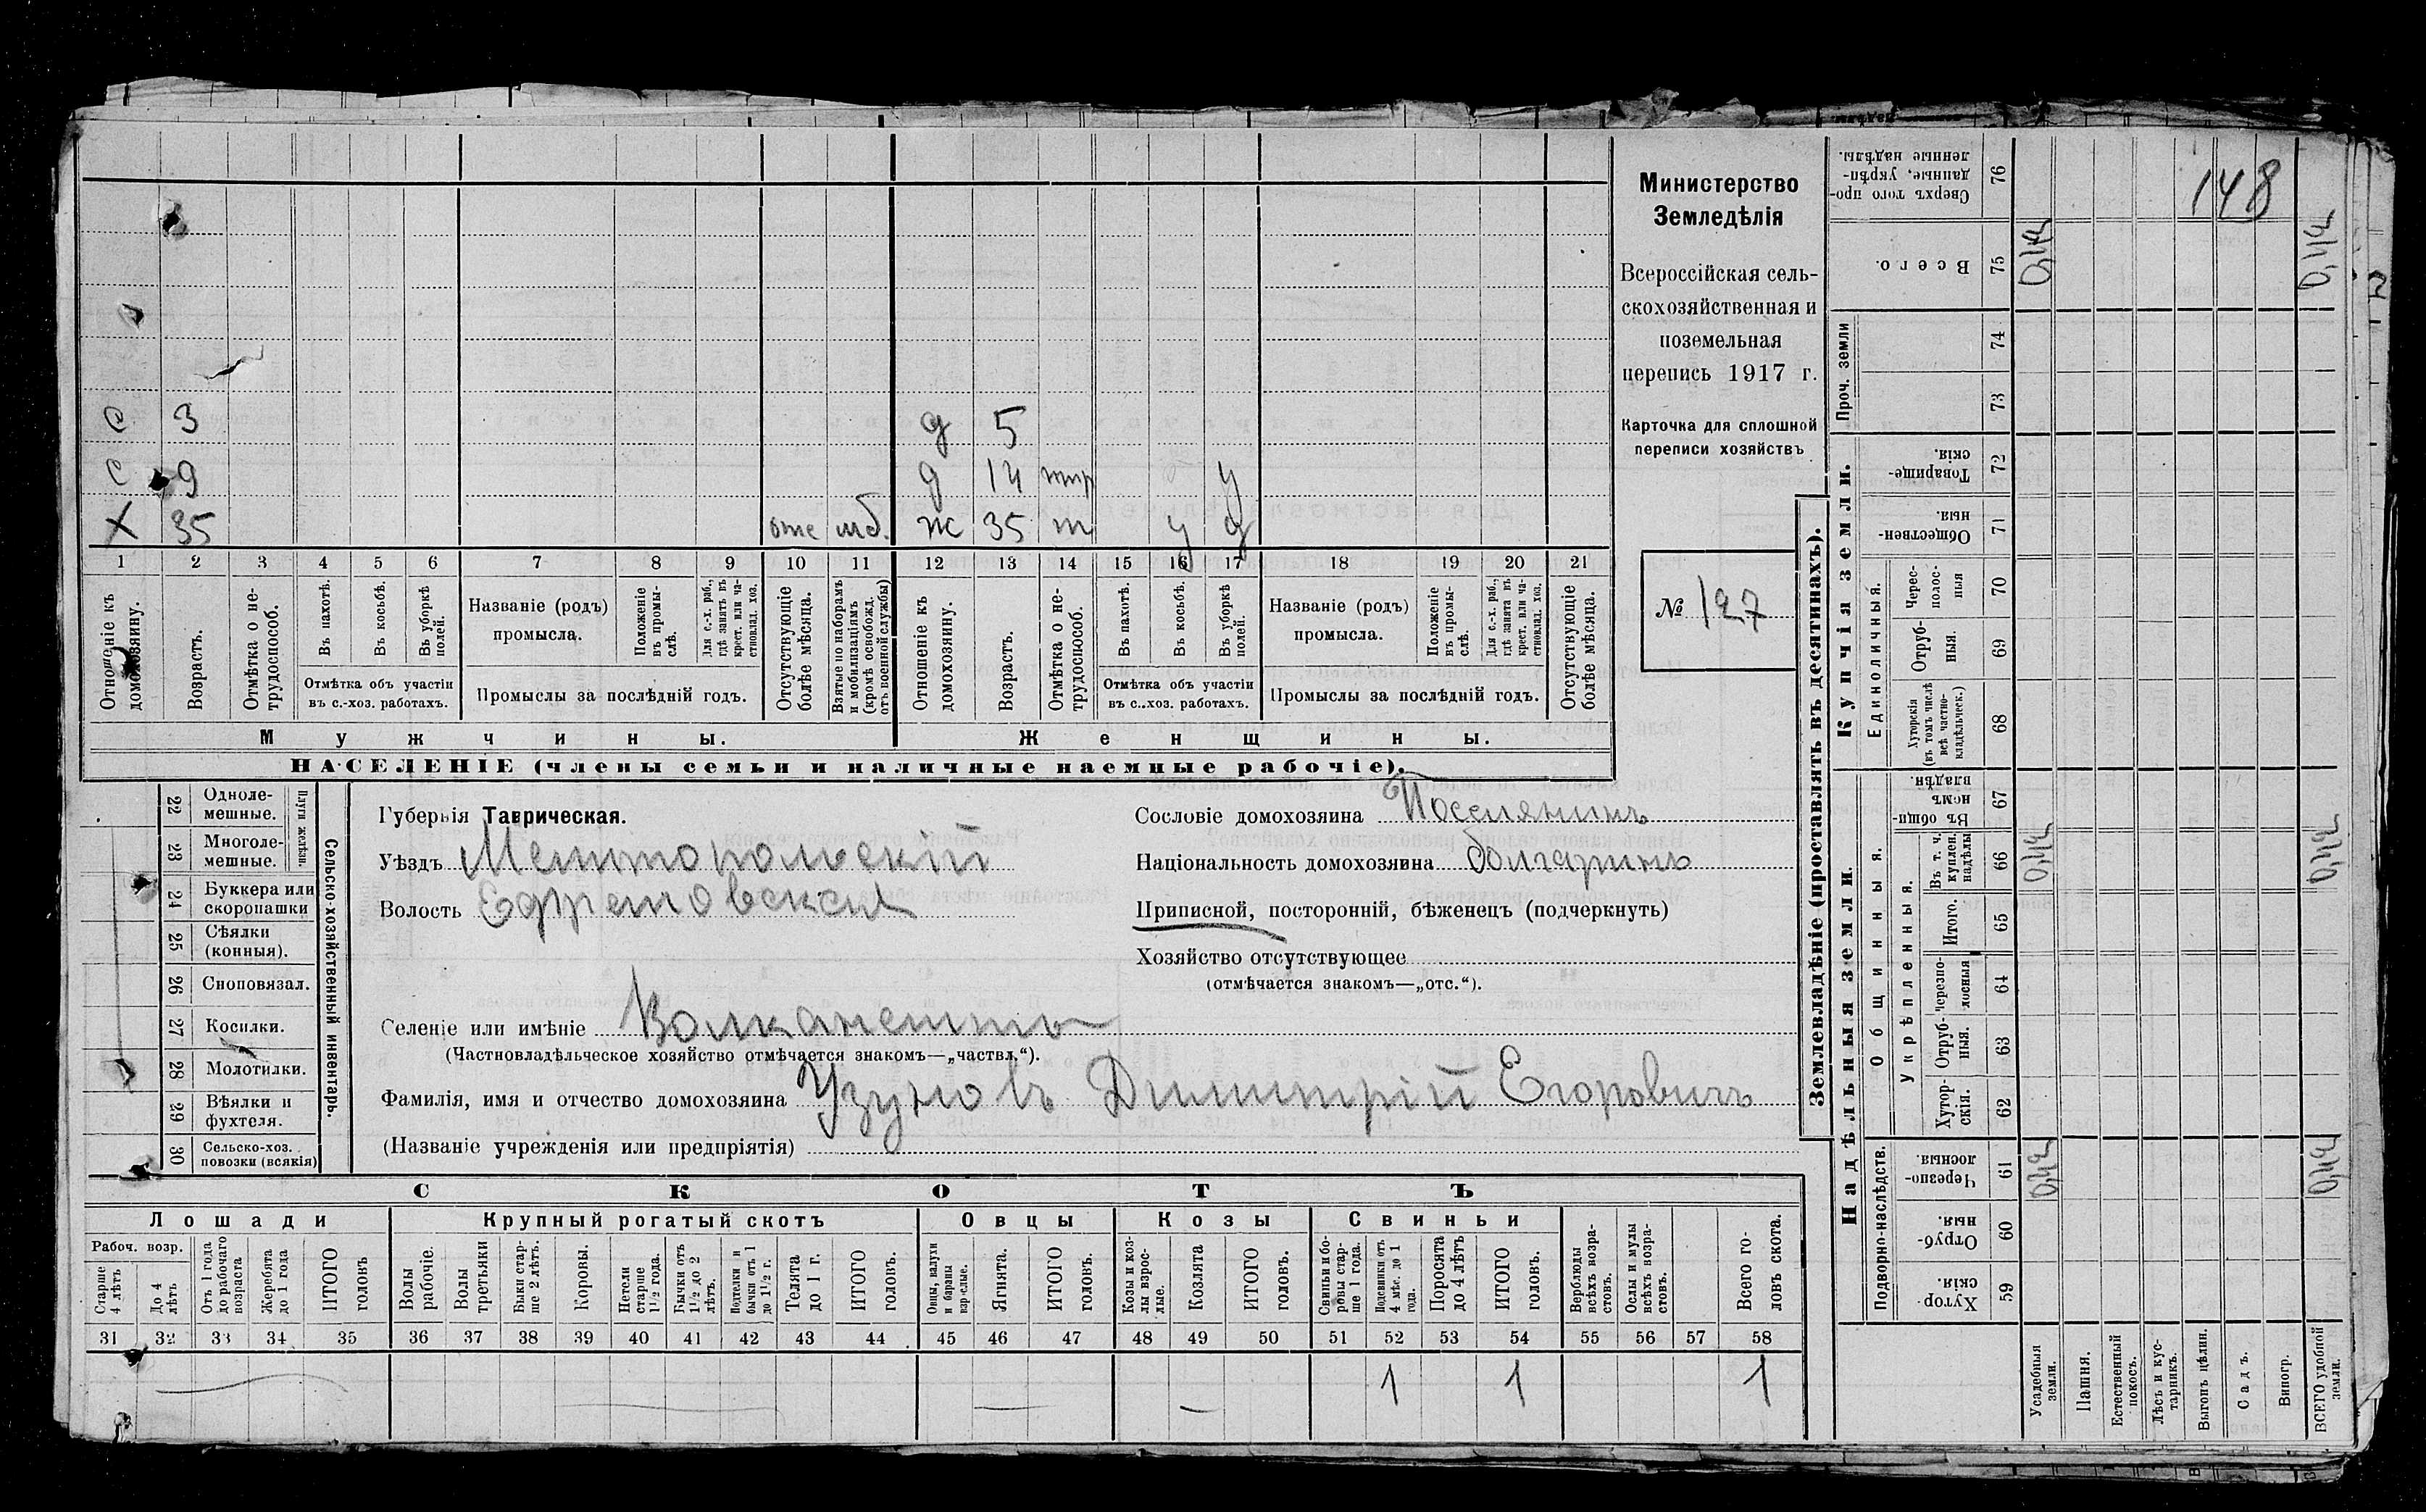 148
Министерство
Земледѣлія
Всероссійская сель-
скохозяйственная и
поземельная
перепись 1917 г.
Карточка для сплошной
переписи хозяйствъ
№ 127
С 3 д 5
С 9 д 14 у
Х 35 отс моб. ж 35 т у д
1 2 3 4 5 6 7 8 9 10 11 12 13 14 15 16 17 18 19 20 21
Отношеніе къ домохозяину.
Возрастъ.
Отмѣтка о не-трудоспособ.
Въ пахотѣ.
Въ косьбѣ.
Въ уборкѣ полей.
Отмѣтка объ участіи
въ с.-хоз. работахъ.
Названіе (родъ)
промысла.
Положеніе въ промы-слѣ.
Для с.-х. раб., гдѣ занятъ въ крест. или ча-стновлад. хоз.
Промыслы за послѣдній годъ.
Отсутствующіе болѣе мѣсяца.
Взятые по наборамъ и мобилизаціямъ (кромѣ освобожд. отъ военной службы)
Отношеніе къ домохозяину.
Возрастъ.
Отмѣтка о не-трудоспособ.
Въ пахотѣ.
Въ косьбѣ.
Въ уборкѣ полей.
Отмѣтка объ участіи
въ с.-хоз. работахъ.
Названіе (родъ)
промысла.
Положеніе въ промы-слѣ.
Для с.-х. раб., гдѣ занята въ крест. или ча-стновлад. хоз.
Промыслы за послѣдній годъ.
Отсутствующіе болѣе мѣсяца.
Мужчины. Женщины.
НАСЕЛЕНІЕ (члены семьи и наличные наемные рабочіе).
Сельско-хозяйственный инвентарь.
Плуги желѣзн.
22 Одноле-мешные.
23 Многоле-мешные.
24 Буккера или скоропашки
25 Сѣялки (конныя).
26 Сноповязал.
27 Косилки.
28 Молотилки.
29 Вѣялки и фухтеля.
30 Сельско-хоз. повозки (всякія)
Губернія Таврическая.
Уѣздъ Мелитопольскій
Волость Ефремовская
Селеніе или имѣніе Волканешты
(Частновладѣльческое хозяйство отмѣчается знакомъ—„частвл.“).
Фамилія, имя и отчество домохозяина Узуновъ Димитрій Егоровичъ
(Названіе учрежденія или предпріятія)
Сословіе домохозяина Поселянинъ
Національность домохозяина болгаринъ
Приписной, посторонній, бѣженецъ (подчеркнуть)
Хозяйство отсутствующее
(отмѣчается знакомъ—„отс.“).
СКОТЪ
Лошади Крупный рогатый скотъ Овцы Козы Свиньи
Рабоч. возр.
Старше 4 лѣтъ
До 4 лѣтъ
Отъ 1 года до рабочаго возраста
Жеребята до 1 года
ИТОГО головъ
Волы рабочіе.
Волы третьяки
Быки стар-ше 2 лѣтъ.
Коровы.
Нетели старше 1½ года.
Бычки отъ 1½ до 2 лѣтъ.
Подтелки и бычки отъ 1 до 1½ г.
Телята до 1 г.
ИТОГО головъ.
Овцы, валухи и бараны взрослые.
Ягнята.
ИТОГО головъ.
Козы и коз-лы взрос-лые.
Козлята
ИТОГО головъ.
Свиньи и бо-ровы стар-ше 1 года.
Подсвинки отъ 4 мѣс. до 1 года.
Поросята до 4 лѣтъ
ИТОГО головъ.
Верблюды всѣхъ возра-стовъ.
Ослы и мулы всѣхъ возра-стовъ.
Всего го-ловъ скота.
31 32 33 34 35 36 37 38 39 40 41 42 43 44 45 46 47 48 49 50 51 52 53 54 55 56 57 58
1 1 1
Землевладѣніе (проставлять въ десятинахъ).
Надѣльныя земли. Купчія земли. Проч. земли
Подворно-наслѣдств.
Общинныя.
Укрѣпленныя.
Единоличный.
Хутор-скія. 59
Отруб-ныя. 60
Черезпо-лосныя. 61
Хутор-скія. 62
Отруб-ныя. 63
Черезпо-лосныя 64
Итого. 65
Въ т. ч. куплен. надѣлы 66
Въ общи-номъ владѣн. 67
Хуторскія (въ томъ числѣ всѣ частно-владѣльческ.) 68
Отруб-ныя. 69
Черес-полос-ныя 70
Обществен-ныя. 71
Товарище-скія. 72
73
74
Всего. 75
Сверхъ того про-данные, укрѣп-ленные надѣлы. 76
Усадебныя земли.
Пашня.
Естественный покосъ.
Лѣсъ и кус-тарникъ.
Выгонъ цѣлин.
Садъ.
Виногр.
ВСЕГО удобной земли.